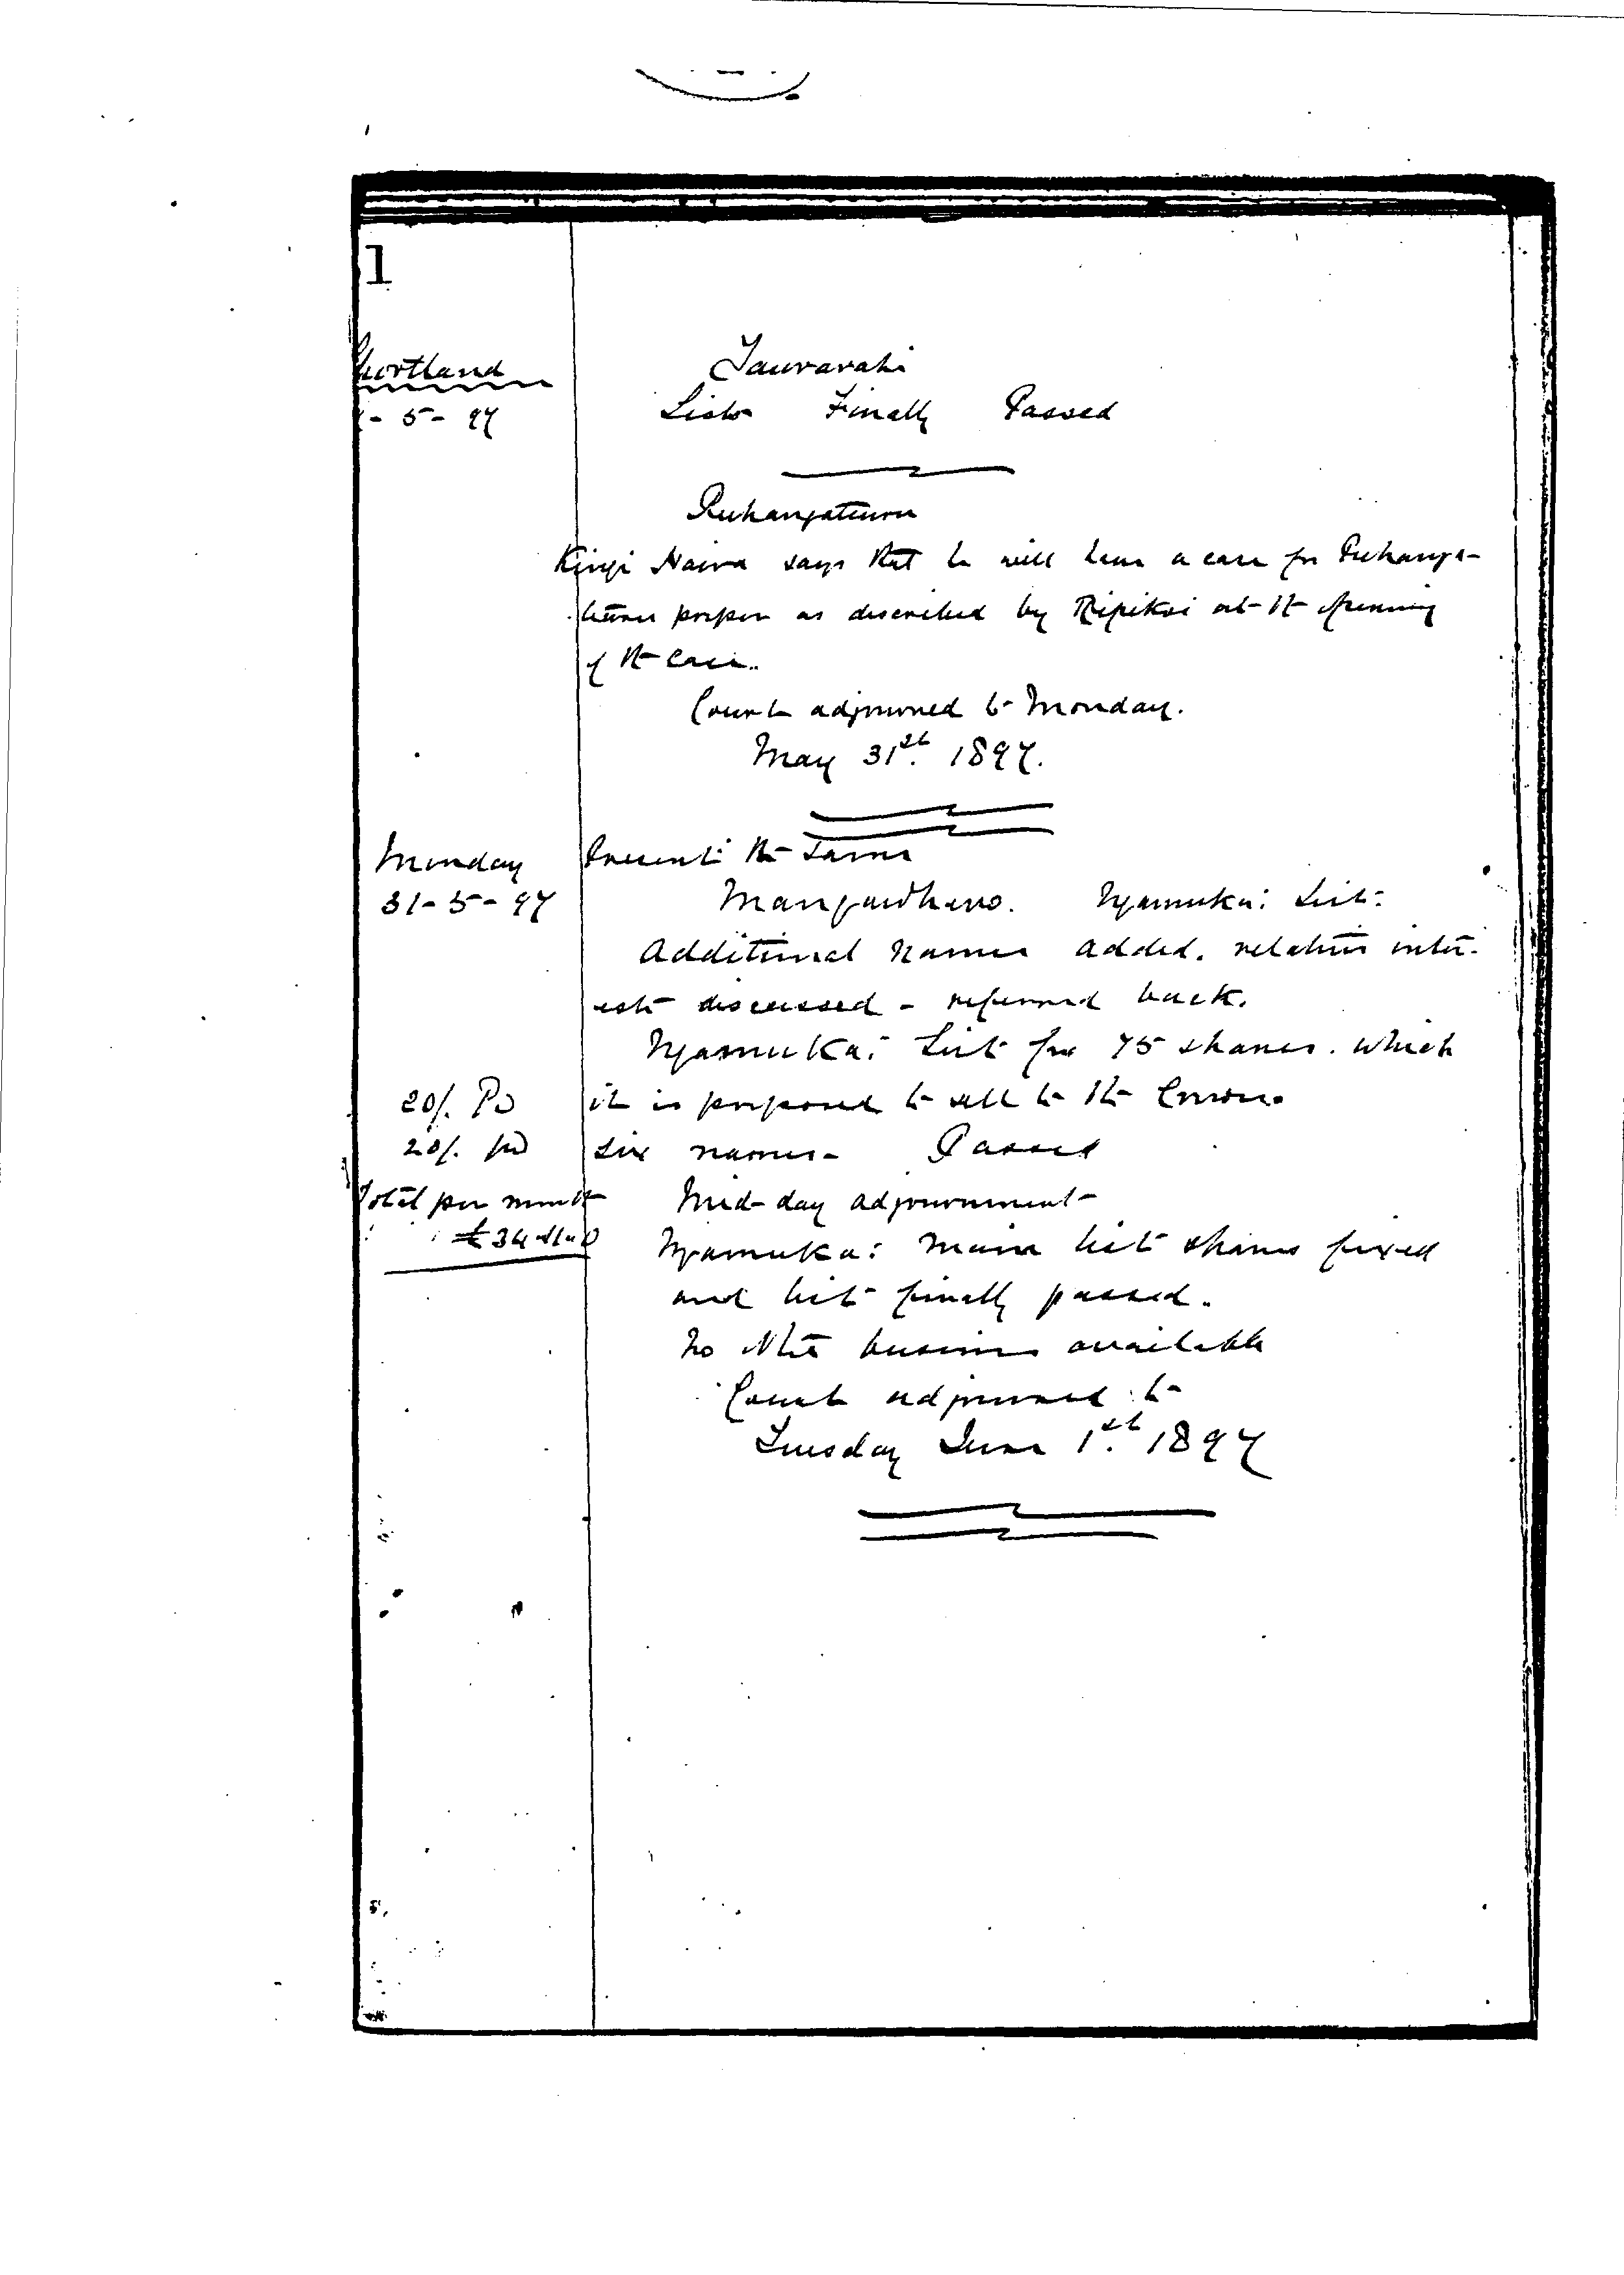 1
Shortland
- 5 - 97
Tauwarahi
Lists Finally Passed
Puhangateuru
Kingi Naera says that he will have a case for Puhanga-
teuru proper as described by Ripikoi at the opening
of the case.
Court adjourned to Monday.
May 31st. 1897.
Monday
31-5-97
Present: the same
Mangawhero. Ngamuka: List:
Additional names added. relative inter-
ests discussed - referred back.
Ngamuka: List for 75 shares. which
20/. Pd it is proposed to sell to the Crown.
20/. pd six names - Passed
Total per month Mid-day adjournment
Ngamuka: Main list shares fixed
and list finally passed.
No other business available
Court adjourned to
Tuesday June 1st. 1897